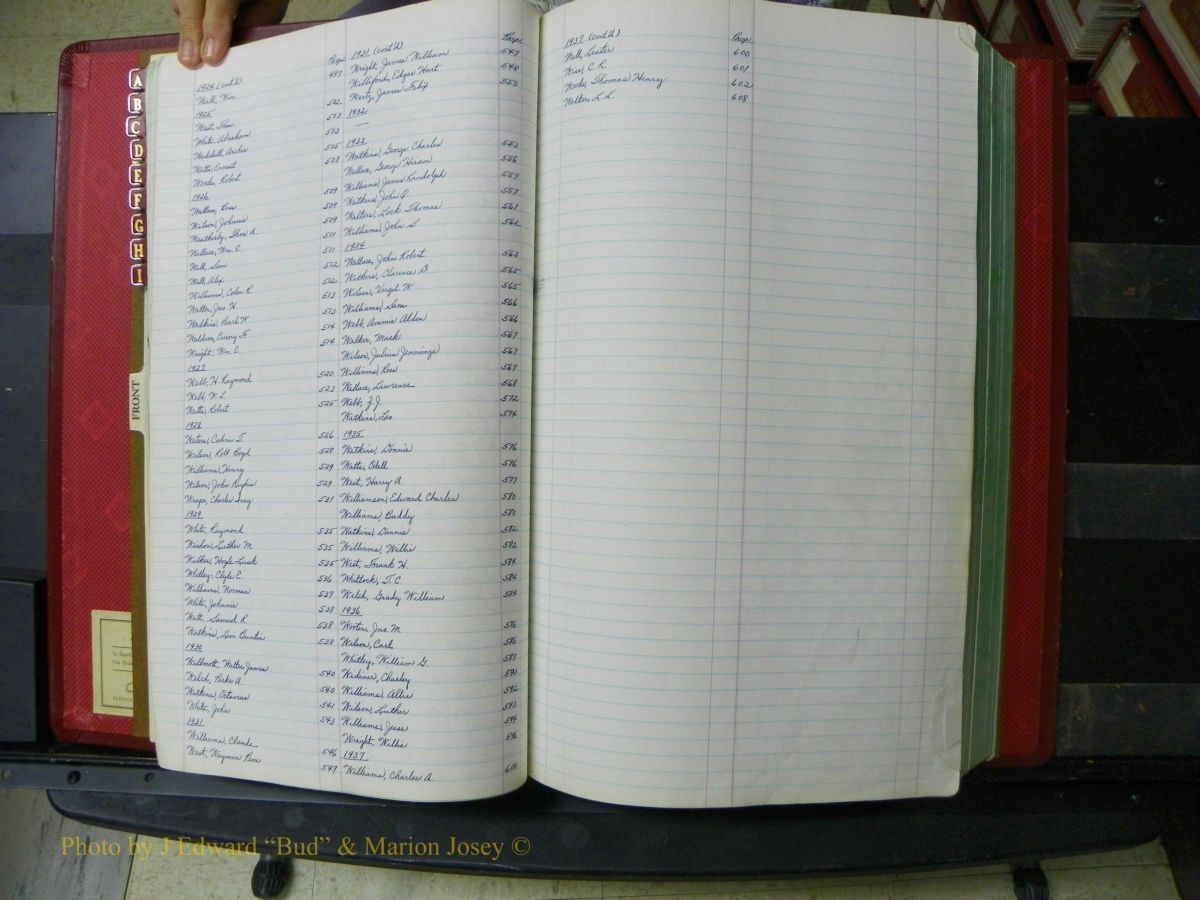 A
B
C
D
E
F
G
H
I
FRONT
Page
1924 (cont'd)
Wall, Wm. 497
1925
West, Thos. 502
White, Abraham 503
Waddell, Archie 503
Watts, Ernest 505
Woods, Robert 508
1926
Wallace, Bose 509
Wilson, Johnnie 509
Weatherly, Thos. A. 509
Wallace, Wm. E. 511
Wall, Sam 511
Wall, Alex 512
Williams, Colon R. 512
Walter, Jno. H. 513
Watkins, Pearl W. 513
Waldron, Emory G. 514
Wright, Wm. E. 514
1927
Webb, H. Raymond 520
Webb, W. L. 523
Watts, Robert 525
1928
Waters, Calvin T. 526
Wilson, Robt. Boyd 528
Williams, Henry 529
Wilson, John Rufus 529
Wraps, Charles Ivey 531
1929
White, Raymond 535
Wishon, Luther M. 535
Walker, Hoyle Lusk 535
Whitley, Clyde E. 536
Williams, Norman 537
White, Johnnie 538
Watt, Samuel R. 538
Watkins, Levi 538
1930
Willmott, Walter James
Welch, Parks A. 540
Watkins, Octavius 540
White, John 541
1931 543
Williams, Claude 546
West, Wayman 547
1931 (cont'd) Page
Wright, James William 547
Williford, Edgar Hart 548
Wertz, James Felix 550
1932
—
1933
Watkins, George Charles 553
Wallace, George Hiram 556
Williams, James Randolph 557
Watkins, John Q. 557
Walters, Lock Thomas 561
Williams, John S. 562
1934
Wallace, John Robert 563
Withers, Clarence D. 565
Wilson, Virgil W. 565
Williams, Sam 566
Webb, Ammie Alden 566
Walker, Mack 567
Wilson, Julius Jennings 567
Williams, Ross 567
Wallace, Lawrence 568
Webb, Z. J. 572
Watkins, Leo 574
1935
Watkins, Donnie 576
Watts, Odell 576
West, Harry A. 577
Williamson, Edward Charles 580
Williams, Buddy 580
Watkins, Dannie 582
Williams, Willie 582
West, Frank H. 584
Whitlock, T. C. 584
Welch, Grady William 584
1936
Wooten, Jno. M. 586
Wilson, Carl 586
Whitley, William G. 587
Widener, Charley 591
Williams, Allie 592
Wilson, Luther 593
Williams, Jesse 594
Wright, Willie 596
1937
Williams, Charles A. 600
1937 (cont'd) Page
Wall, Lester 600
Wise, C. R. 601
Woods, Thomas Henry 602
Walker, L. L. 608
Photo by J Edward “Bud” & Marion Josey ©